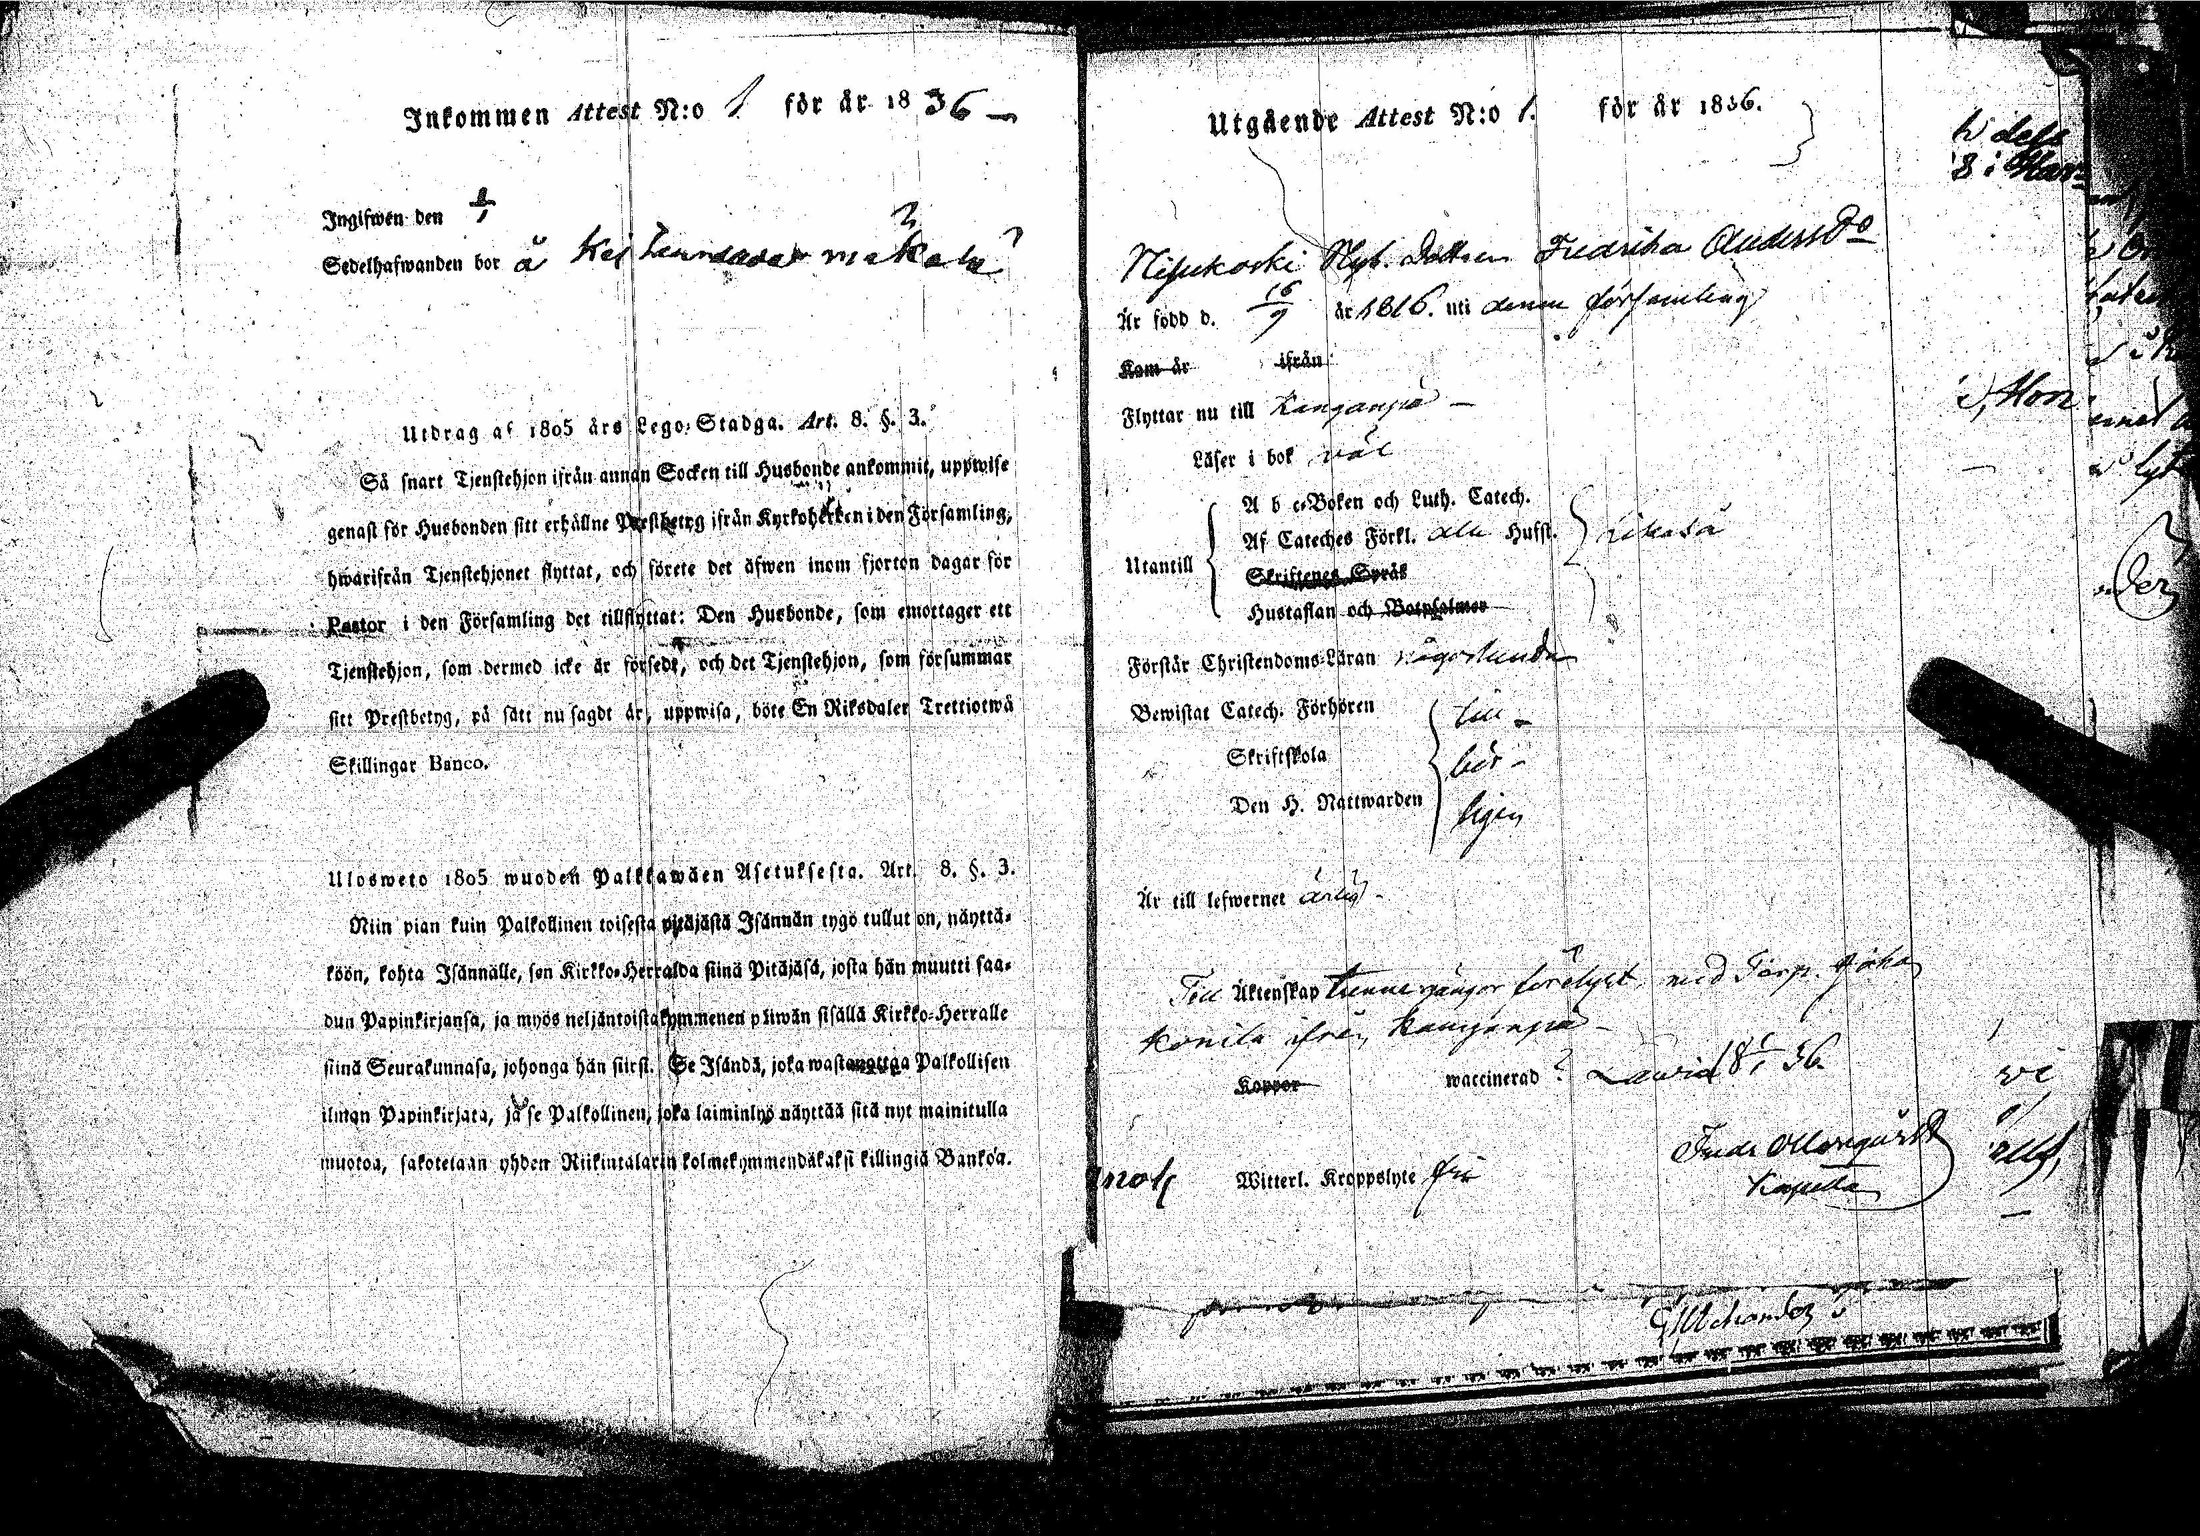 Inkommen Attest N:o 1 för år 1836
Ingifwen den
Sedelhafwanden bor å
Utdrag af 1805 års Lego-Stadga. Art. 8. §. 3.
Så snart Tjenstehjon ifrån annan Socken till Husbonde ankommit, uppwise
genast för Husbonden sitt erhållne Prestbetyg ifrån Kyrkoherren i den Församling,
hwarifrån Tjenstehjonet flyttat, och förete det äfwen inom fjorton dagar för
Pastor i den Församling det tillflyttat: Den Husbonde, som emottager ett
Tjenstehjon, som dermed icke är försedt, och det Tjenstehjon, som försummar
sitt Prestbetyg, på sätt nu sagdt är, uppwisa, böte En Riksdaler Trettiotwå
Skillingar Banco.
Ulosweto 1805 wuoden Palkkawäen Asetuksesta. Art. 8. §. 3.
Niin pian kuin Palkollinen toisesta pitäjästä Isännän tygö tullut on, näyttä-
köön, kohta Isännälle, sen Kirkko-Herralda siinä Pitäjäsä, josta hän muutti saa-
dun Papinkirjansa, ja myös neljäntoistakymmenen päiwän sisällä Kirkko-Herralle
siinä Seurakunnasa, johonga hän siirsi. Se Isändä, joka wastanottaa Palkollisen
ilman Papinkirjata, ja se Palkollinen, joka laiminlyö näyttää sitä nyt mainitulla
muotoa, sakotetaan yhden Riikintalarin kolmekymmendäkaksi killingiä Bankoa.
Utgående Attest N:o 1. för år 1836.
Dottren Fredrika Anders Do
Är född d. 16/9 år 1816. uti denna församling
Kom år ifrån
Flyttar nu till Kanganpä
Läser i bok väl
A b c-Boken och Luth. Catech.
Af Cateches Förkl. alla Hufst.
Utantill likaså
Skriftenes Språk
Hustaflan och Botpsalmer
Förstår Christendoms-Läran någorlunda
Bewistat Catech. Förhören till-
Skriftskola bör-
Den H. Nattwarden ligen
Är till lefwernet ärlig
Till Äktenskap trenne gångor förelyst, med Torp. Joha
Konila ifrån Kanganpä
Koppor waccinerad Lawia 8/1 36.
Witterl. Kroppslyte fri
Kapellan